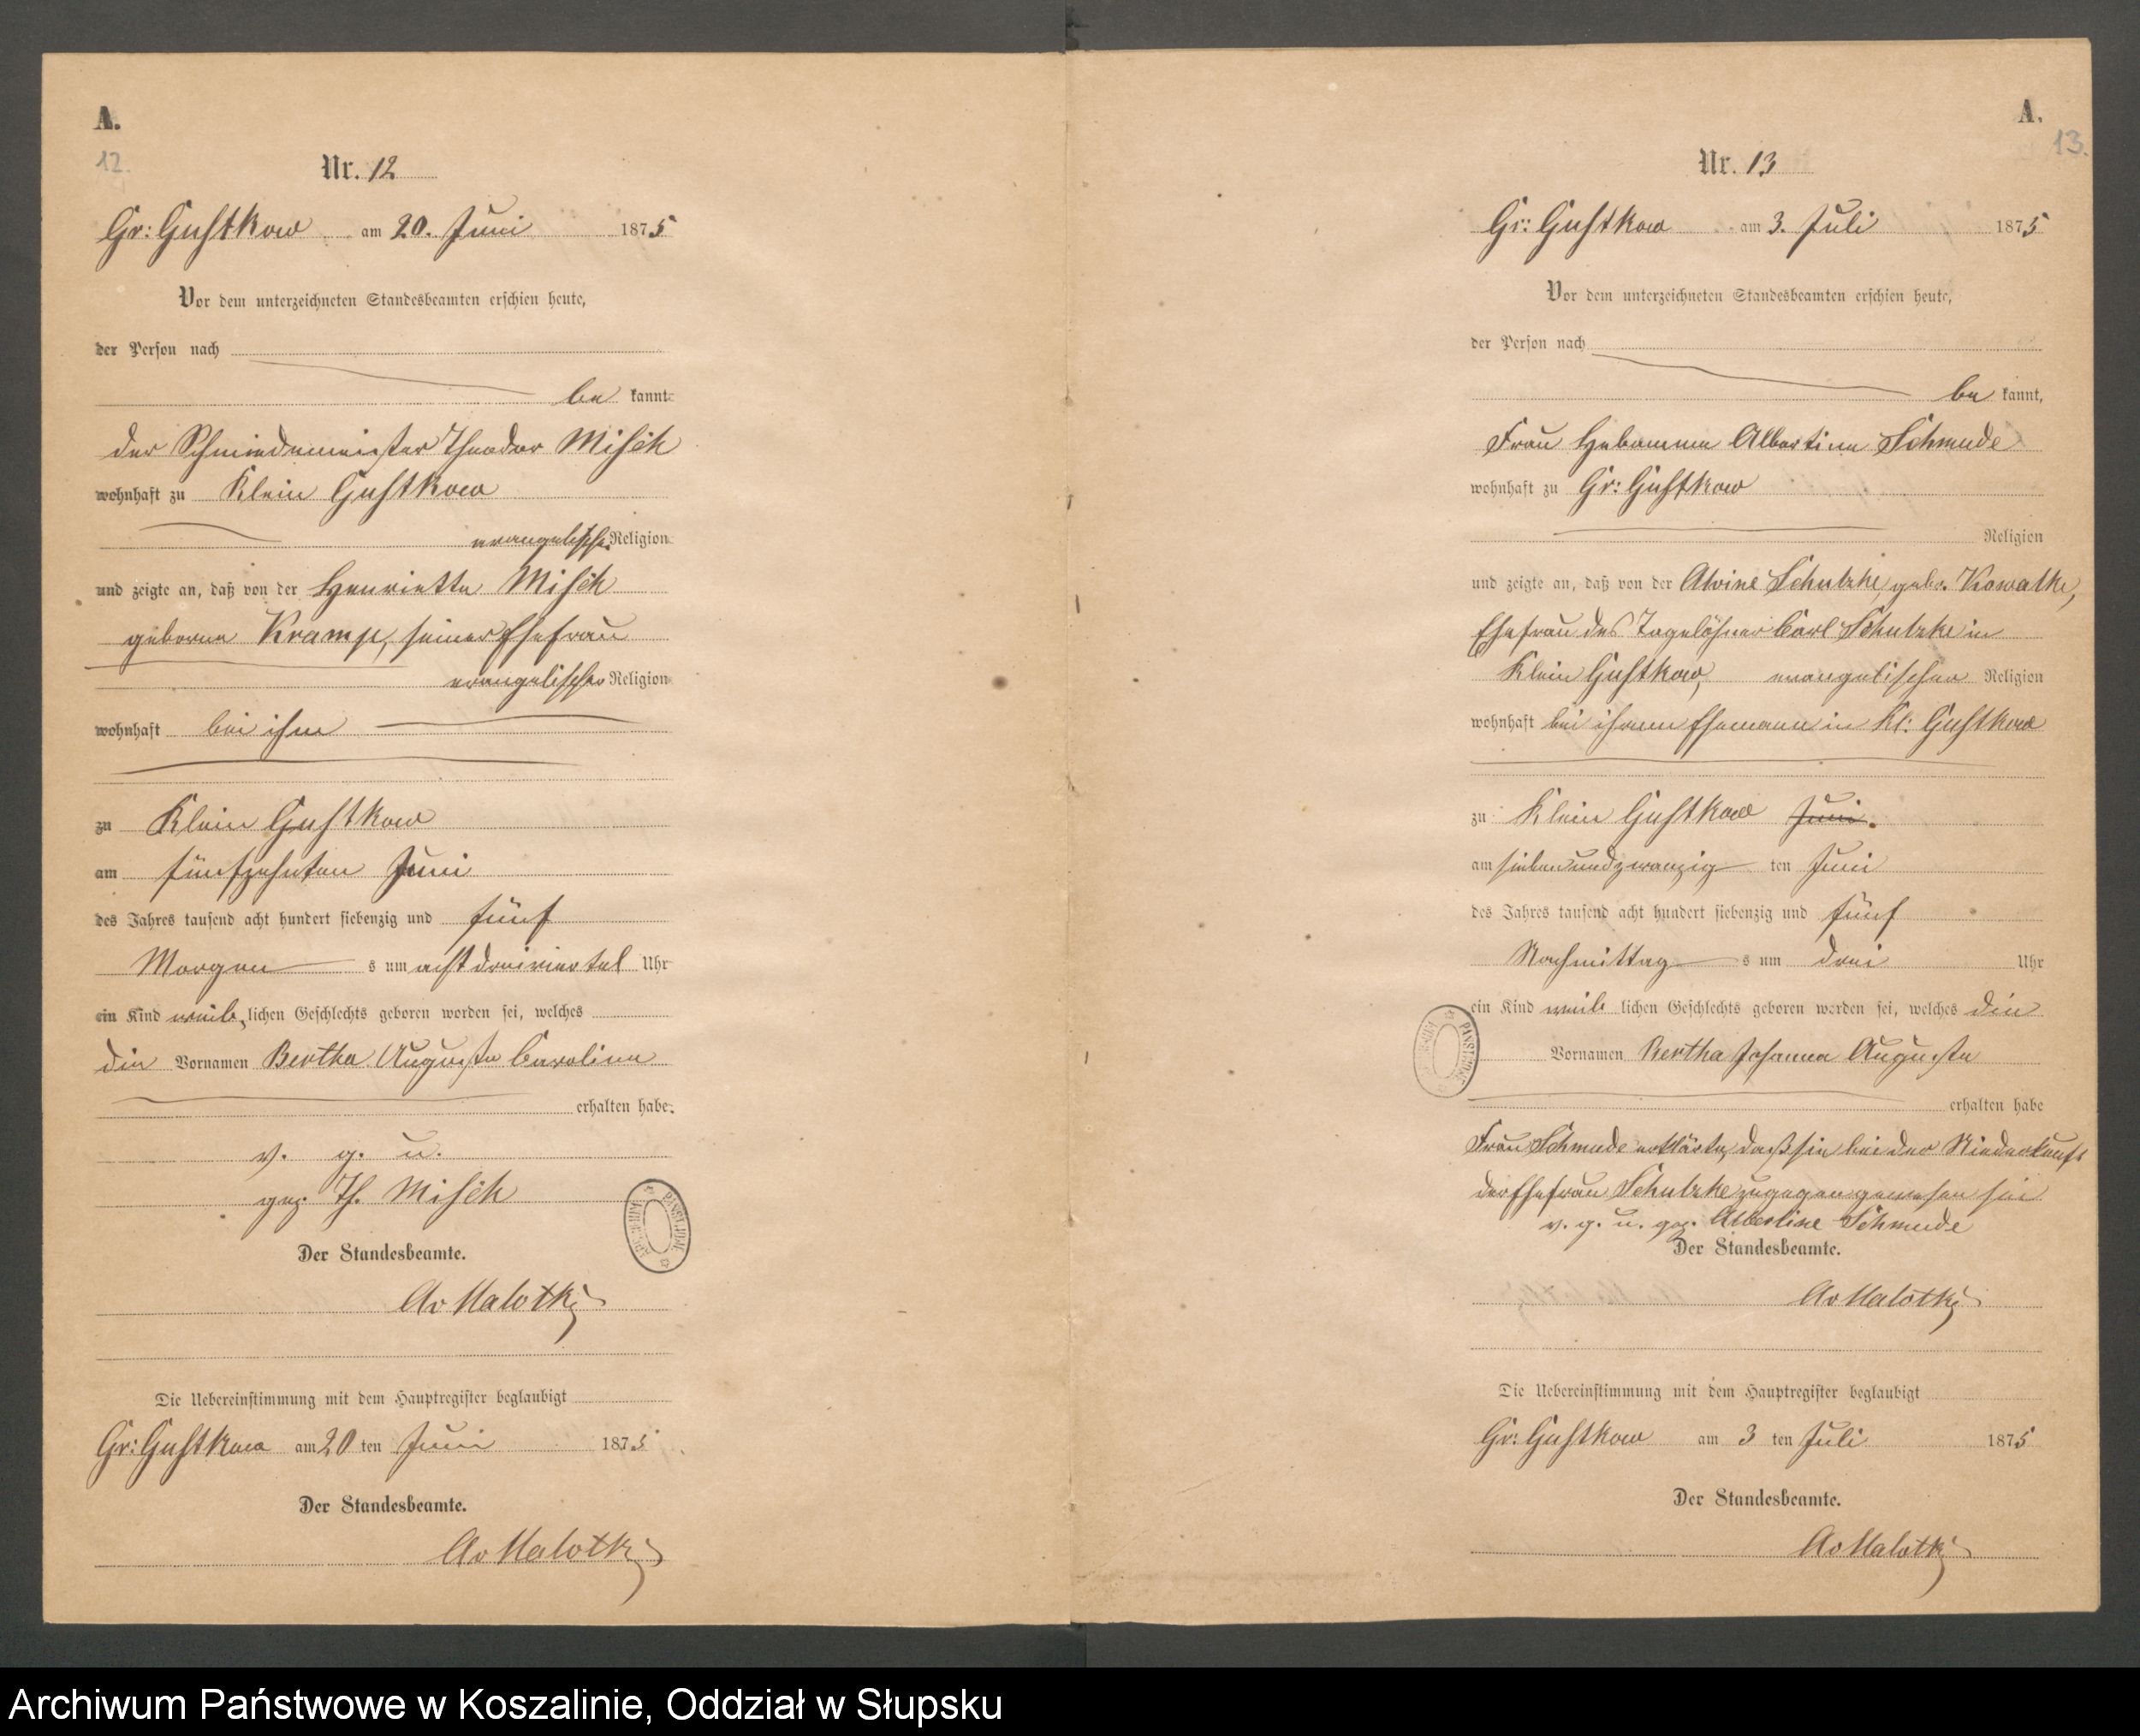 A.
12.
Nr. 12
Gr: Gustkow am 20. Juni 1875
Vor dem unterzeichneten Standesbeamten erschien heute,
der Person nach
be kannt
der Schmiedemeister Theodor Misch
wohnhaft zu Klein Gustkow
evangelischer Religion
und zeigte an, daß von der Henriette Misch
geborne Kramp, seiner Ehefrau
evangelischer Religion
wohnhaft bei ihm
zu Klein Gustkow
am fünfzehnten Juni
des Jahres tausend acht hundert siebenzig und fünf
Morgen s um acht dreiviertel Uhr
ein Kind weib lichen Geschlechts geboren worden sei, welches
die Vornamen Bertha Auguste Caroline
erhalten habe.
v. g. u.
gez. Th. Misch
Der Standesbeamte.
Av Malotki
Die Uebereinstimmung mit dem Hauptregister beglaubigt
Gr: Gustkow am 20 ten Juni 1875
Der Standesbeamte.
Av Malotki
A.
13.
Nr. 13
Gr: Gustkow am 3. Juli 1875
Vor dem unterzeichneten Standesbeamten erschien heute,
der Person nach
be kannt,
Frau Hebamme Albertine Schmude
wohnhaft zu Gr: Gustkow
Religion
und zeigte an, daß von der Alvine Schulzke, gebr. Kowalke,
Ehefrau des Tagelöhner Carl Schulzke in
Klein Gustkow, evangelischer Religion
wohnhaft bei ihrem Ehemann in Kl: Gustkow
zu Klein Gustkow Juni.
am siebenundzwanzig ten Juni
des Jahres tausend acht hundert siebenzig und fünf
Nachmittag s um drei Uhr
ein Kind weib lichen Geschlechts geboren worden sei, welches die
Vornamen Bertha Johanna Auguste
erhalten habe
Frau Schmude erklärte, daß sie bei der Niederkunft
der Ehefrau Schulzke zugegen gewesen sei
v. g. u. gez. Albertine Schmude
Der Standesbeamte.
Av Malotki
Die Uebereinstimmung mit dem Hauptregister beglaubigt
Gr: Gustkow am 3 ten Juli 1875
Der Standesbeamte.
Av Malotki
Archiwum Państwowe w Koszalinie, Oddział w Słupsku